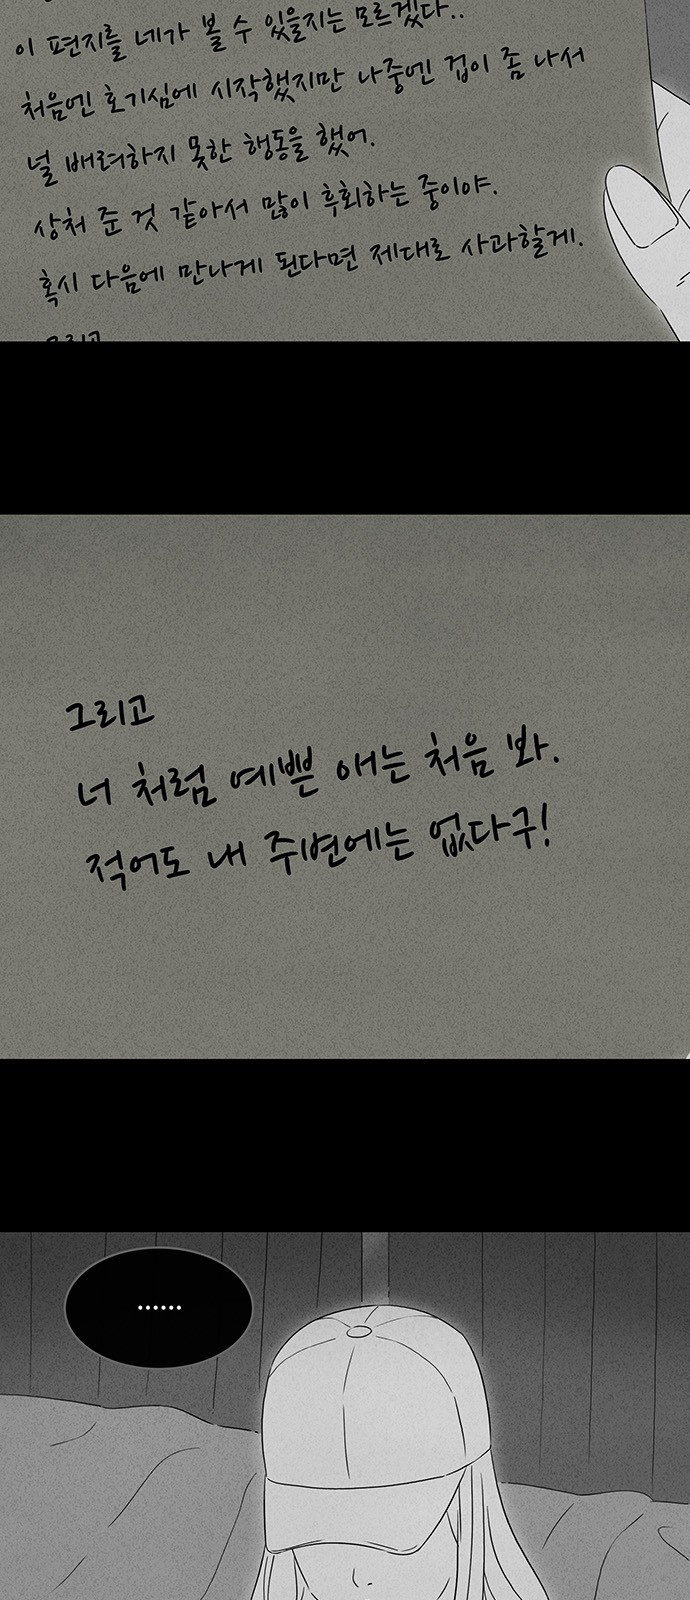 이 편지를 네가 볼 수 있을지는 모르겠다..
처음엔 호기심에 시작했지만 나중엔 겁이 좀 나서
널 배려하지 못한 행동을 했어.
상처 준 것 같아서 많이 후회하는 중이야.
혹시 다음에 만나게 된다면 제대로 사과할게.
그리고
그리고
너 처럼 예쁜 애는 처음 봐.
적어도 내 주변에는 없다구!
······